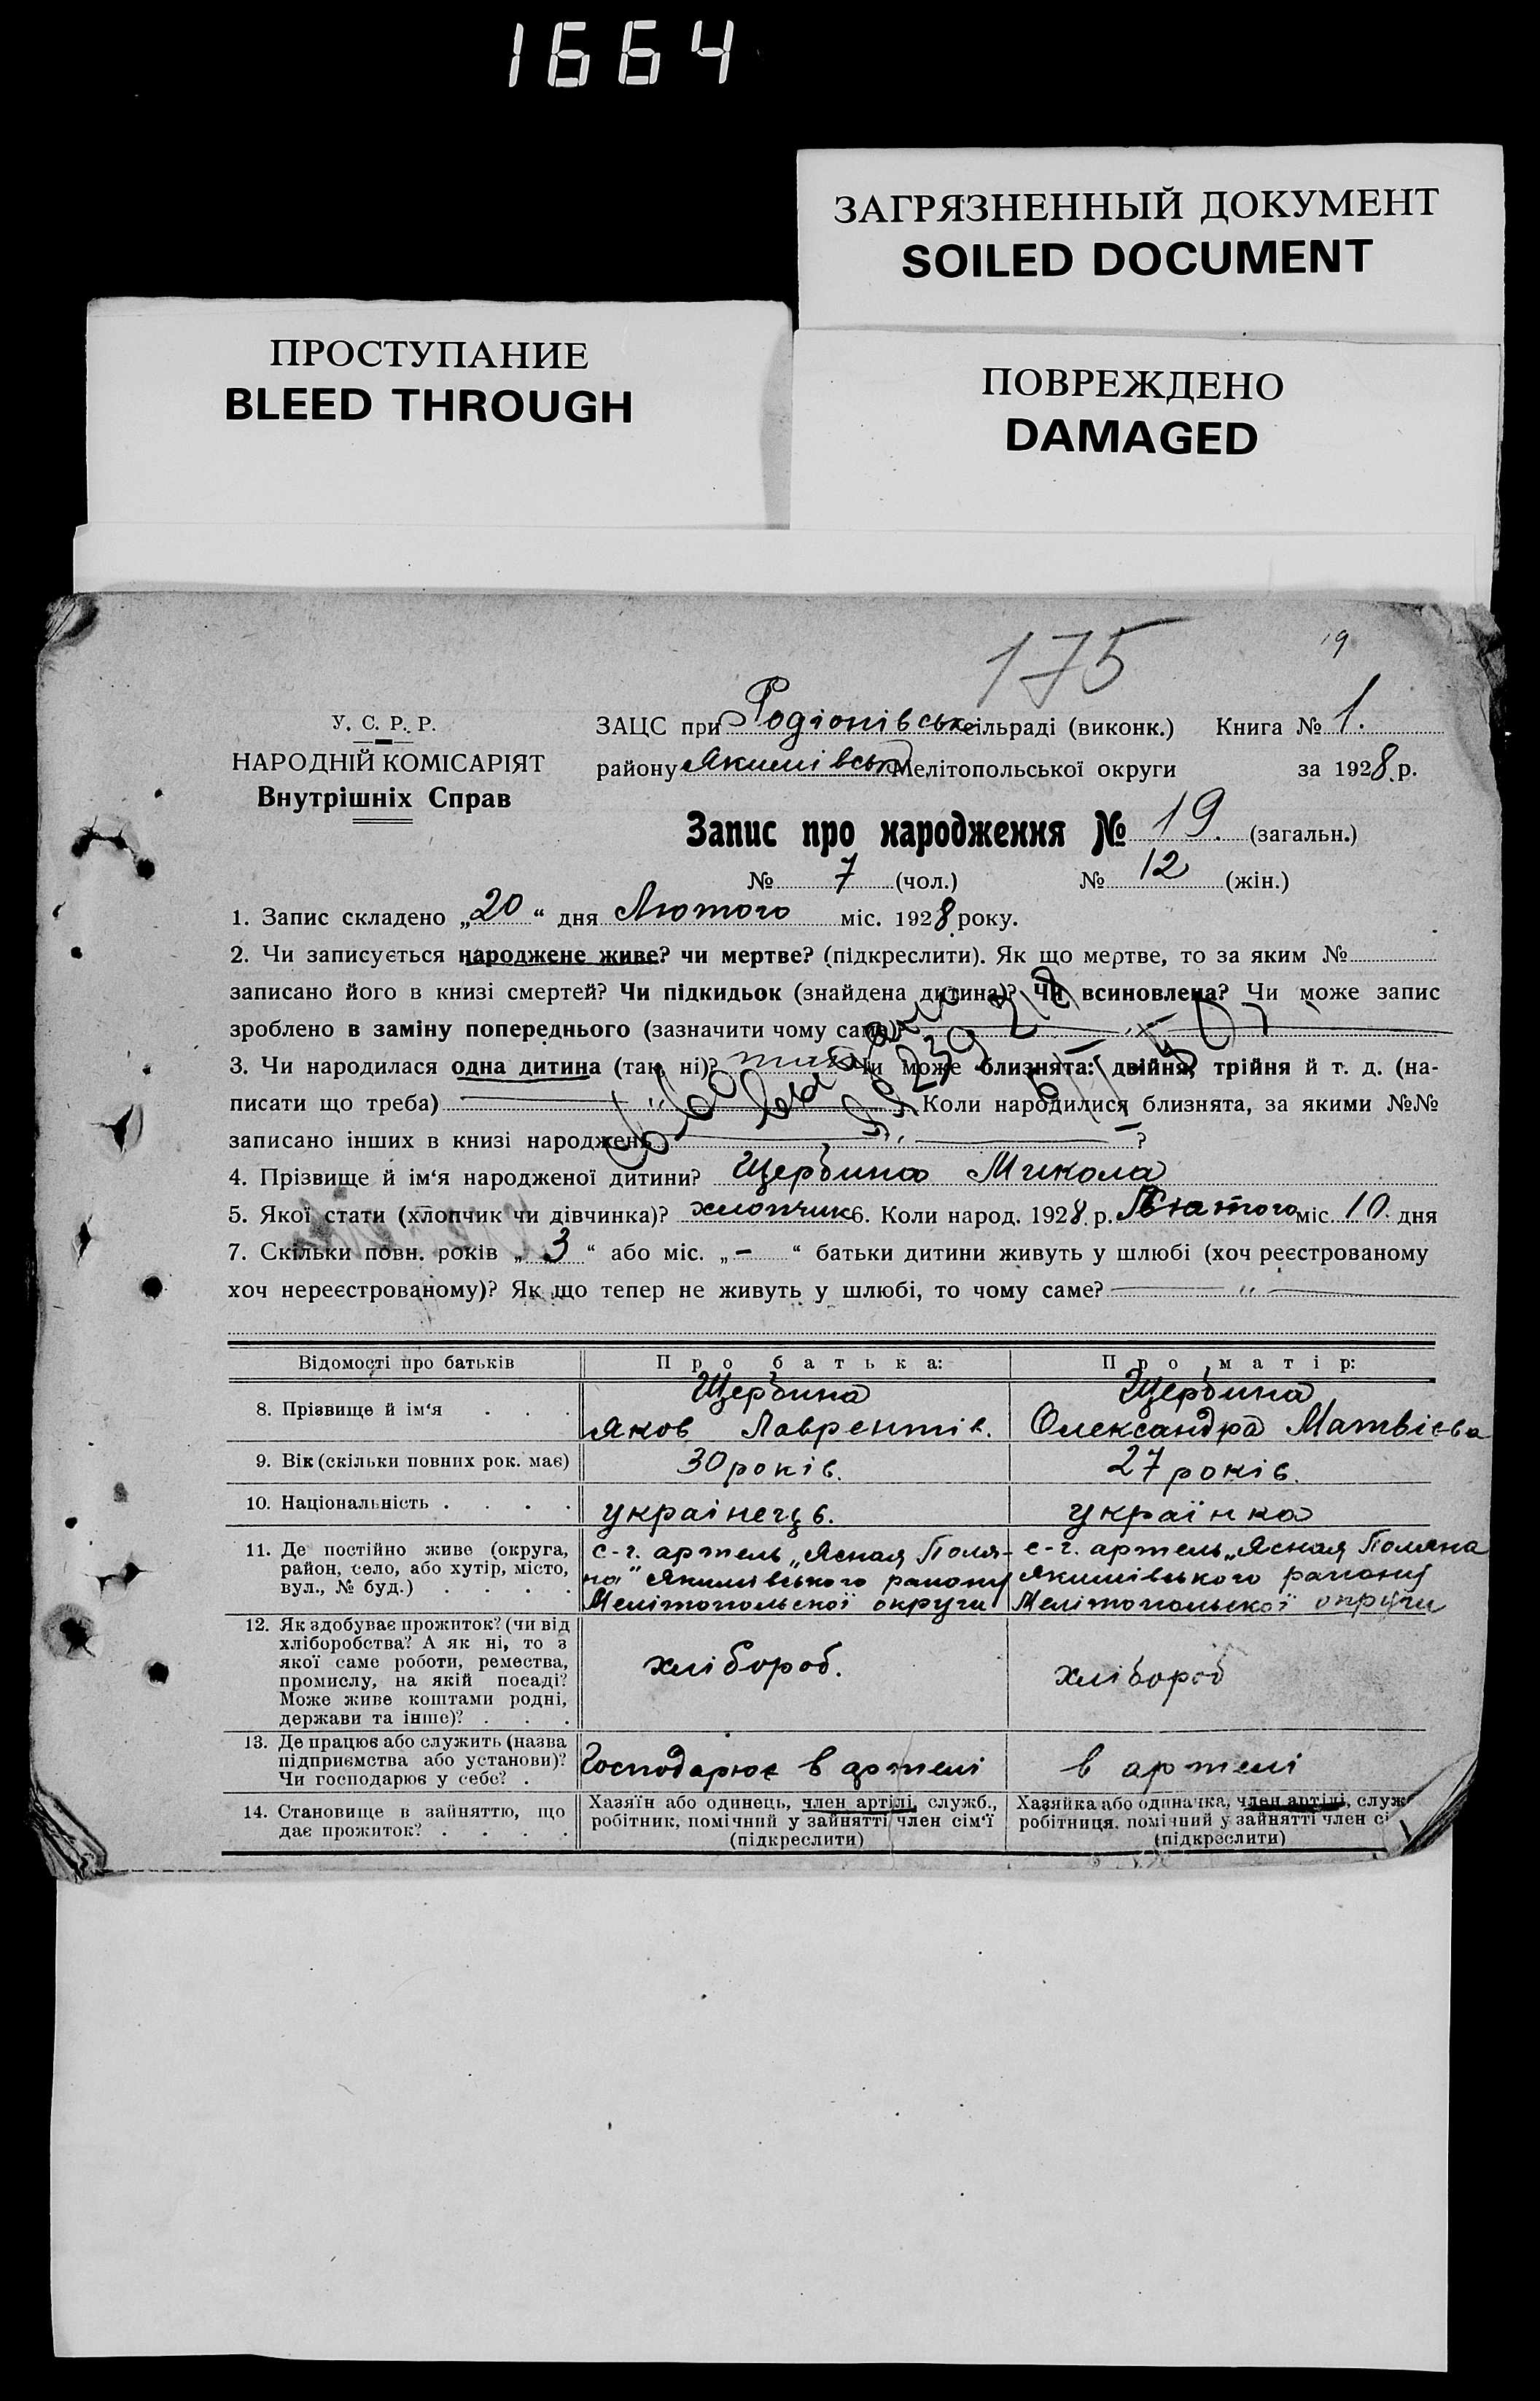 1664
ЗАГРЯЗНЕННЫЙ ДОКУМЕНТ
SOILED DOCUMENT
ПРОСТУПАНИЕ
BLEED THROUGH
ПОВРЕЖДЕНО
DAMAGED
175
19
У. С. Р. Р.
НАРОДНІЙ КОМІСАРІЯТ
Внутрішніх Справ
ЗАЦС при Родіонівськ. сільраді (виконк.) Книга № 1.
району Якимівськ. Мелітопольської округи за 1928 р.
Запис про народження № 19. (загальн.)
№ 7 (чол.) № 12 (жін.)
1. Запис складено „20“ дня Лютого міс. 1928 року.
2. Чи записується народжене живе? чи мертве? (підкреслити). Як що мертве, то за яким №
записано його в книзі смертей? Чи підкидьок (знайдена дитина)? Чи всиновлена? Чи може запис
зроблено в заміну попереднього (зазначити чому саме)? — „ —
3. Чи народилася одна дитина (так, ні)? так Чи може близнята: двійня, трійня й т. д. (на-
писати що треба) — „ — . Коли народилися близнята, за якими №№
записано інших в книзі народжень — „ — ?
4. Прізвище й ім‘я народженої дитини? Щербина Микола
5. Якої стати (хлопчик чи дівчинка)? хлопчик 6. Коли народ. 1928 р. Лютого міс. 10. дня
7. Скільки повн. років „ 3 “ або міс. „ – “ батьки дитини живуть у шлюбі (хоч реєстрованому
хоч нереєстрованому)? Як що тепер не живуть у шлюбі, то чому саме? — „ —
Відомості про батьків Про батька: Про матір:
8. Прізвище й ім‘я . . . Щербина Яков Лаврентів. Щербина Олександра Матвієва
9. Вік (скільки повних рок. має) 30 років. 27 років.
10. Національність . . . . українець. українка
11. Де постійно живе (округа, район, село, або хутір, місто, вул., № буд.) . . . .
с-г. артель „Ясная Поля-
на“ Якимівського району
Мелітопольскої округи
с-г. артель „Ясная Поляна
Якимівського району
Мелітопольскої округи
12. Як здобуває прожиток? (чи від
хліборобства? А як ні, то з
якої саме роботи, ремества,
промислу, на якій посаді?
Може живе коштами родні,
держави та інше)? . . .
хлібороб. хлібороб
13. Де працює або служить (назва
підприємства або установи)?
Чи господарює у себе? .
Господарює в артелі в артелі
14. Становище в зайняттю, що
дає прожиток? . . . .
Хазяїн або одинець, член артілі, служб.,
робітник, помічний у зайнятті член сім‘ї
(підкреслити)
Хазяйка або одиначка, член артілі, служ
робітниця, помічний у зайнятті член сі
(підкреслити)